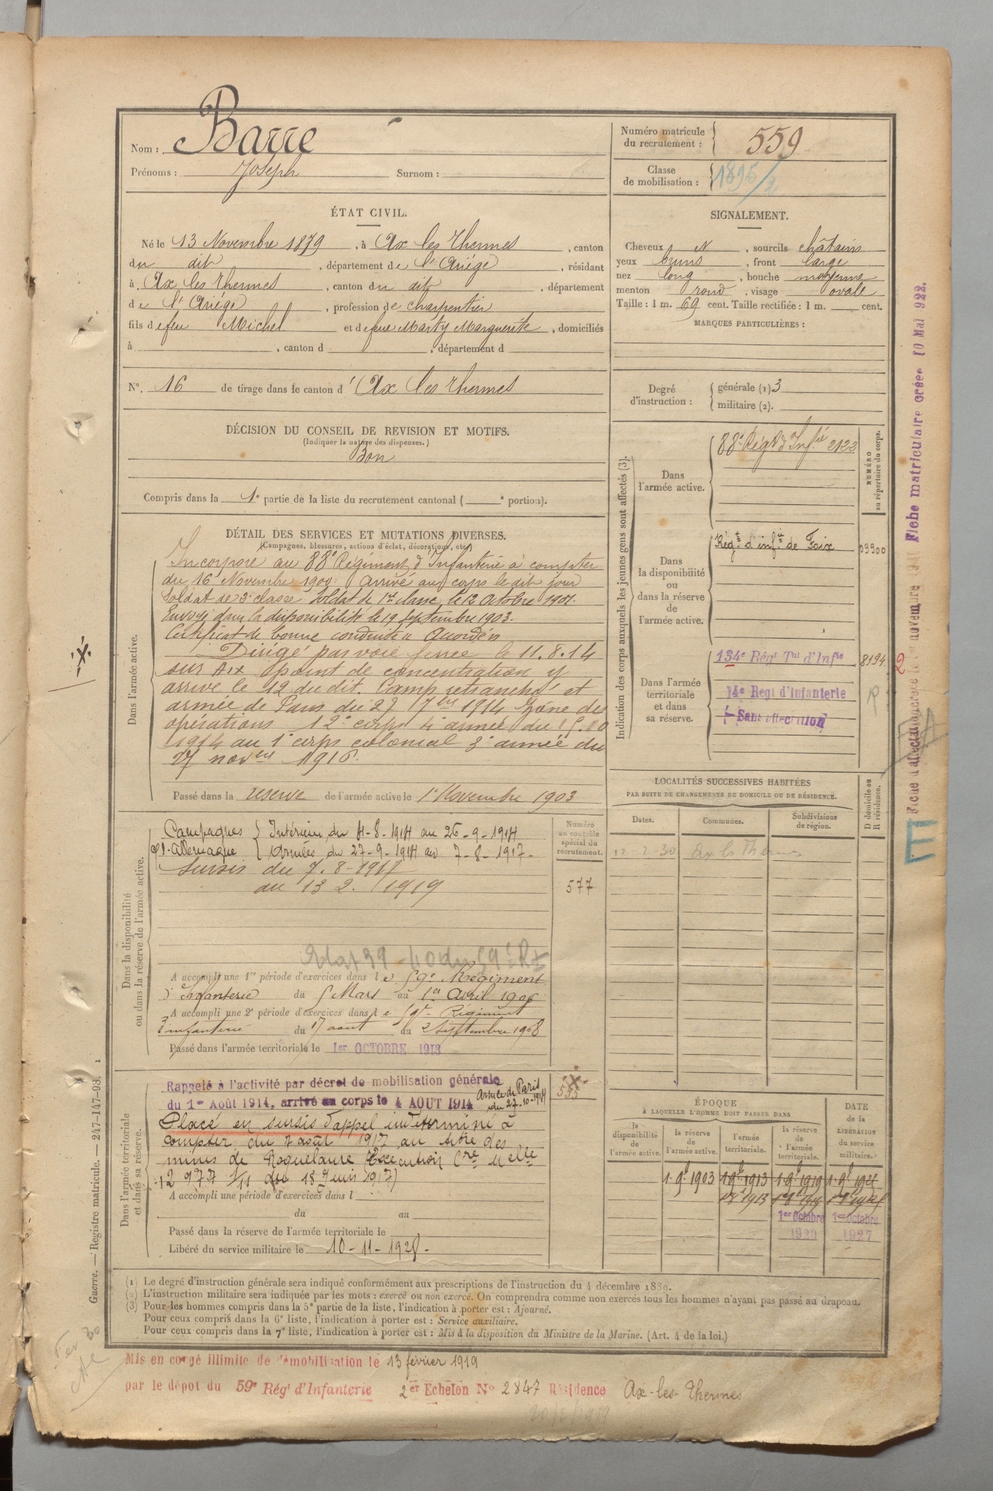 Nom : Barre
Prénoms : Joseph Surnom :
Numéro matricule du recrutement : 559
Classe de mobilisation : 1895/2
ÉTAT CIVIL.
Né le 13 Novembre 1879, à Ax les Thermes, canton
du dit, département de l'Ariège, résidant
à Ax les Thermes, canton du dit, département
de l'Ariège, profession de charpentier
fils de feu Michel et de feue Marty Marguerite, domiciliés
à , canton d , département d
N° 16 de tirage dans le canton d' Ax les Thermes
DÉCISION DU CONSEIL DE REVISION ET MOTIFS.
(Indiquer la nature des dispenses.)
Bon
Compris dans la 1e partie de la liste du recrutement cantonal ( e portion).
SIGNALEMENT.
Cheveux N, sourcils châtains
yeux bruns, front large
nez long, bouche moyenne
menton rond, visage ovale
Taille : 1 m. 69 cent. Taille rectifiée : 1 m. cent.
MARQUES PARTICULIÈRES :
Degré d'instruction : générale (1) 3
militaire (2).
Indication des corps auxquels les jeunes gens sont affectés (3).
NUMÉRO au répertoire du corps.
Dans l'armée active. 88e Régt d'Infie 2122
Dans la disponibilité ou dans la réserve de l'armée active. Régt d'infie de Foix 03900
Dans l'armée territoriale et dans sa réserve. 134e Régt Tal d'Infie 8194
14e Regt d'Infanterie
Sans affectation
DÉTAIL DES SERVICES ET MUTATIONS DIVERSES.
(Campagnes, blessures, actions d'éclat, décorations, etc.)
Dans l'armée active.
Incorporé au 88e Régiment d'Infanterie à compter
du 16 Novembre 1900 Arrivé au corps le dit jour
Soldat de 2e classe. Soldat de 1re classe le 12 Octobre 1901.
Envoyé dans la disponibilité le 19 Septembre 1903.
Certificat de bonne conduite Accordé.
Dirigé par voie ferrée le 11.8.14
sur Aix point de concentration y
arrivé le 12 du dit. Camp retranché et
armée de Paris du 27 7bre 1914 zône des
opérations 12e corps 4e armée du
1914 au 1e corps colonial 3e armée du
27 novbre 1916.
Passé dans la réserve de l'armée active le 1er Novembre 1903
LOCALITÉS SUCCESSIVES HABITÉES
PAR SUITE DE CHANGEMENTS DE DOMICILE OU DE RÉSIDENCE.
Dates. Communes. Subdivisions de région. D domicile ou R résidence.
Ax les Thermes
Dans la disponibilité ou dans la réserve de l'armée active.
Numéro au contrôle spécial du recrutement.
577
Campagnes Intérieur du 4-8-1914 au 26-9-1914
c/ l'Allemagne Armées du 27-9-1914 au 7-8-1917.
Sursis du 7-8-1917
au 13 2. 1919
A accompli une 1re période d'exercices dans le 59e Régiment
d'Infanterie du 5 Mars au 1er Avril 1906
A accompli une 2e période d'exercices dans le 59e Régiment
d'infanterie du 17 août au 2 Septembre 1908
Passé dans l'armée territoriale le 1er OCTOBRE 1913
Dans l'armée territoriale et dans sa réserve.
Rappelé à l'activité par décret de mobilisation générale
du 1er Août 1914, arrivé au corps le 4 AOUT 1914
Armée de Paris
du 27-10-1914
Placé en sursis d'appel indéterminé à
compter du 7 août 1917 au titre des
mines de Roquelaure Exécution Cre Melle
12977 1/11 du 18 juin 1917)
A accompli une période d'exercices dans l
du au
Passé dans la réserve de l'armée territoriale le
Libéré du service militaire le 10-11-1928.
ÉPOQUE
À LAQUELLE L'HOMME DOIT PASSER DANS
la disponibilité de l'armée active.
la réserve de l'armée active.
l'armée territoriale.
la réserve de l'armée territoriale.
DATE de la LIBÉRATION du service militaire.
1er Octobre 1920
1er Octobre 1927
(1) Le degré d'instruction générale sera indiqué conformément aux prescriptions de l'instruction du 4 décembre 1889.
(2) L'instruction militaire sera indiquée par les mots : exercé ou non exercé. On comprendra comme non exercés tous les hommes n'ayant pas passé au drapeau.
(3) Pour les hommes compris dans la 5e partie de la liste, l'indication à porter est : Ajourné.
Pour ceux compris dans la 6e liste, l'indication à porter est : Service auxiliaire.
Pour ceux compris dans la 7e liste, l'indication à porter est : Mis à la disposition du Ministre de la Marine. (Art. 4 de la loi.)
Mis en congé illimité de démobilisation le 13 février 1919
par le dépôt du 59e Régt d'Infanterie 2er Echelon N° 2847 Résidence Ax-les-Thermes
Guerre. — Registre matricule. 247-147-98.
Fiche matriculaire créée 10 Mai 922.